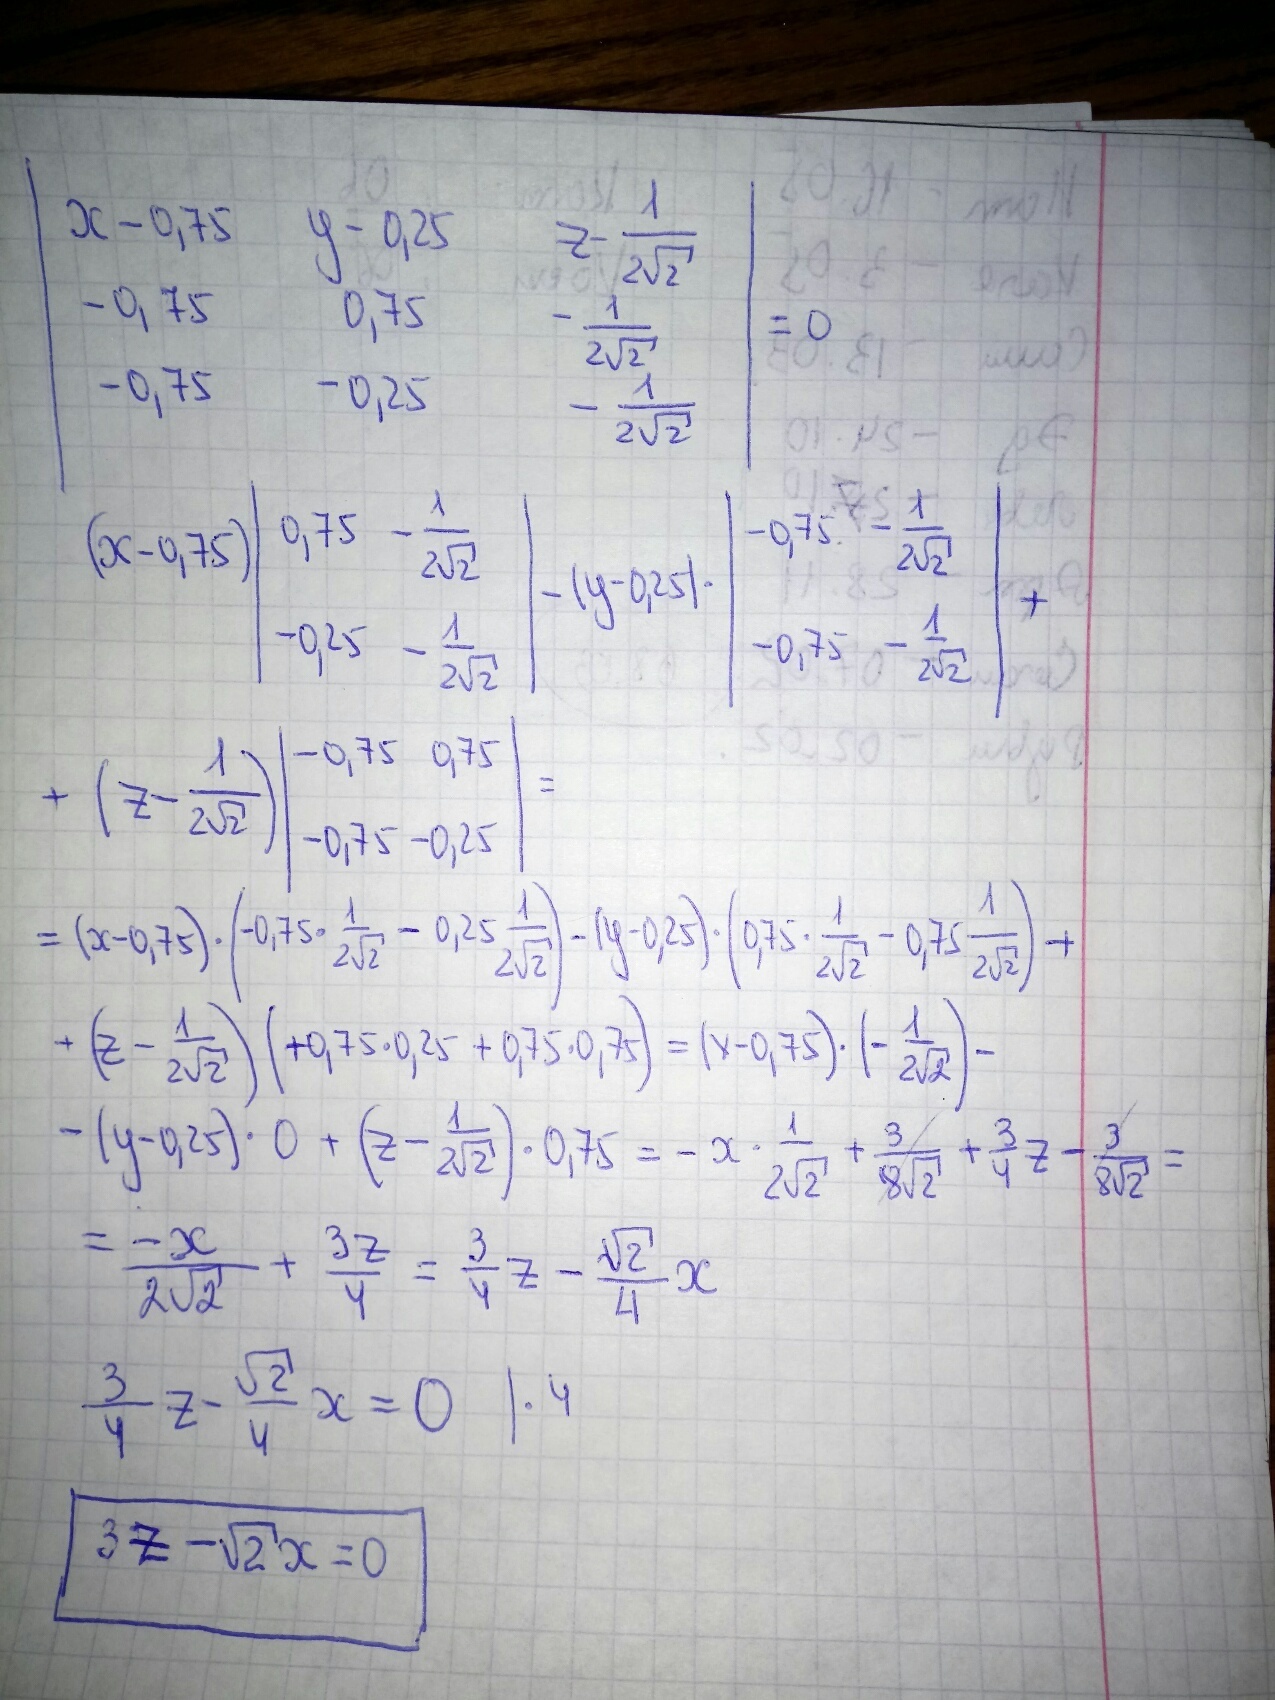 | x-0,75 y-0,25 z-1/(2√2) |
| -0,75 0,75 -1/(2√2) | =0
| -0,75 -0,25 -1/(2√2) |
(x-0,75) | 0,75 -1/(2√2) ; -0,25 -1/(2√2) | -(y-0,25)· | -0,75 -1/(2√2) ; -0,75 -1/(2√2) | +
+ (z-1/(2√2)) | -0,75 0,75 ; -0,75 -0,25 | =
= (x-0,75)·(-0,75·1/(2√2) - 0,25 1/(2√2)) -(y-0,25)·(0,75·1/(2√2) - 0,75 1/(2√2)) +
+ (z-1/(2√2)) (+0,75·0,25 + 0,75·0,75) = (x-0,75)·(-1/(2√2)) -
- (y-0,25)·0 + (z-1/(2√2))·0,75 = -x·1/(2√2) + 3/(8√2) + 3/4 z - 3/(8√2) =
= -x/(2√2) + 3z/4 = 3/4 z - √2/4 x
3/4 z - √2/4 x = 0 |·4
3z - √2x = 0